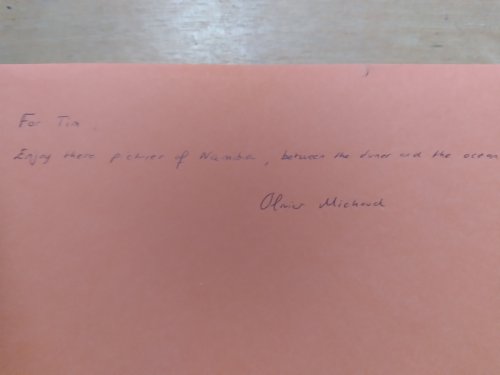 For Tim
Enjoy these pictures of Namibia, between the dunes and the ocean
Olivier Michaud